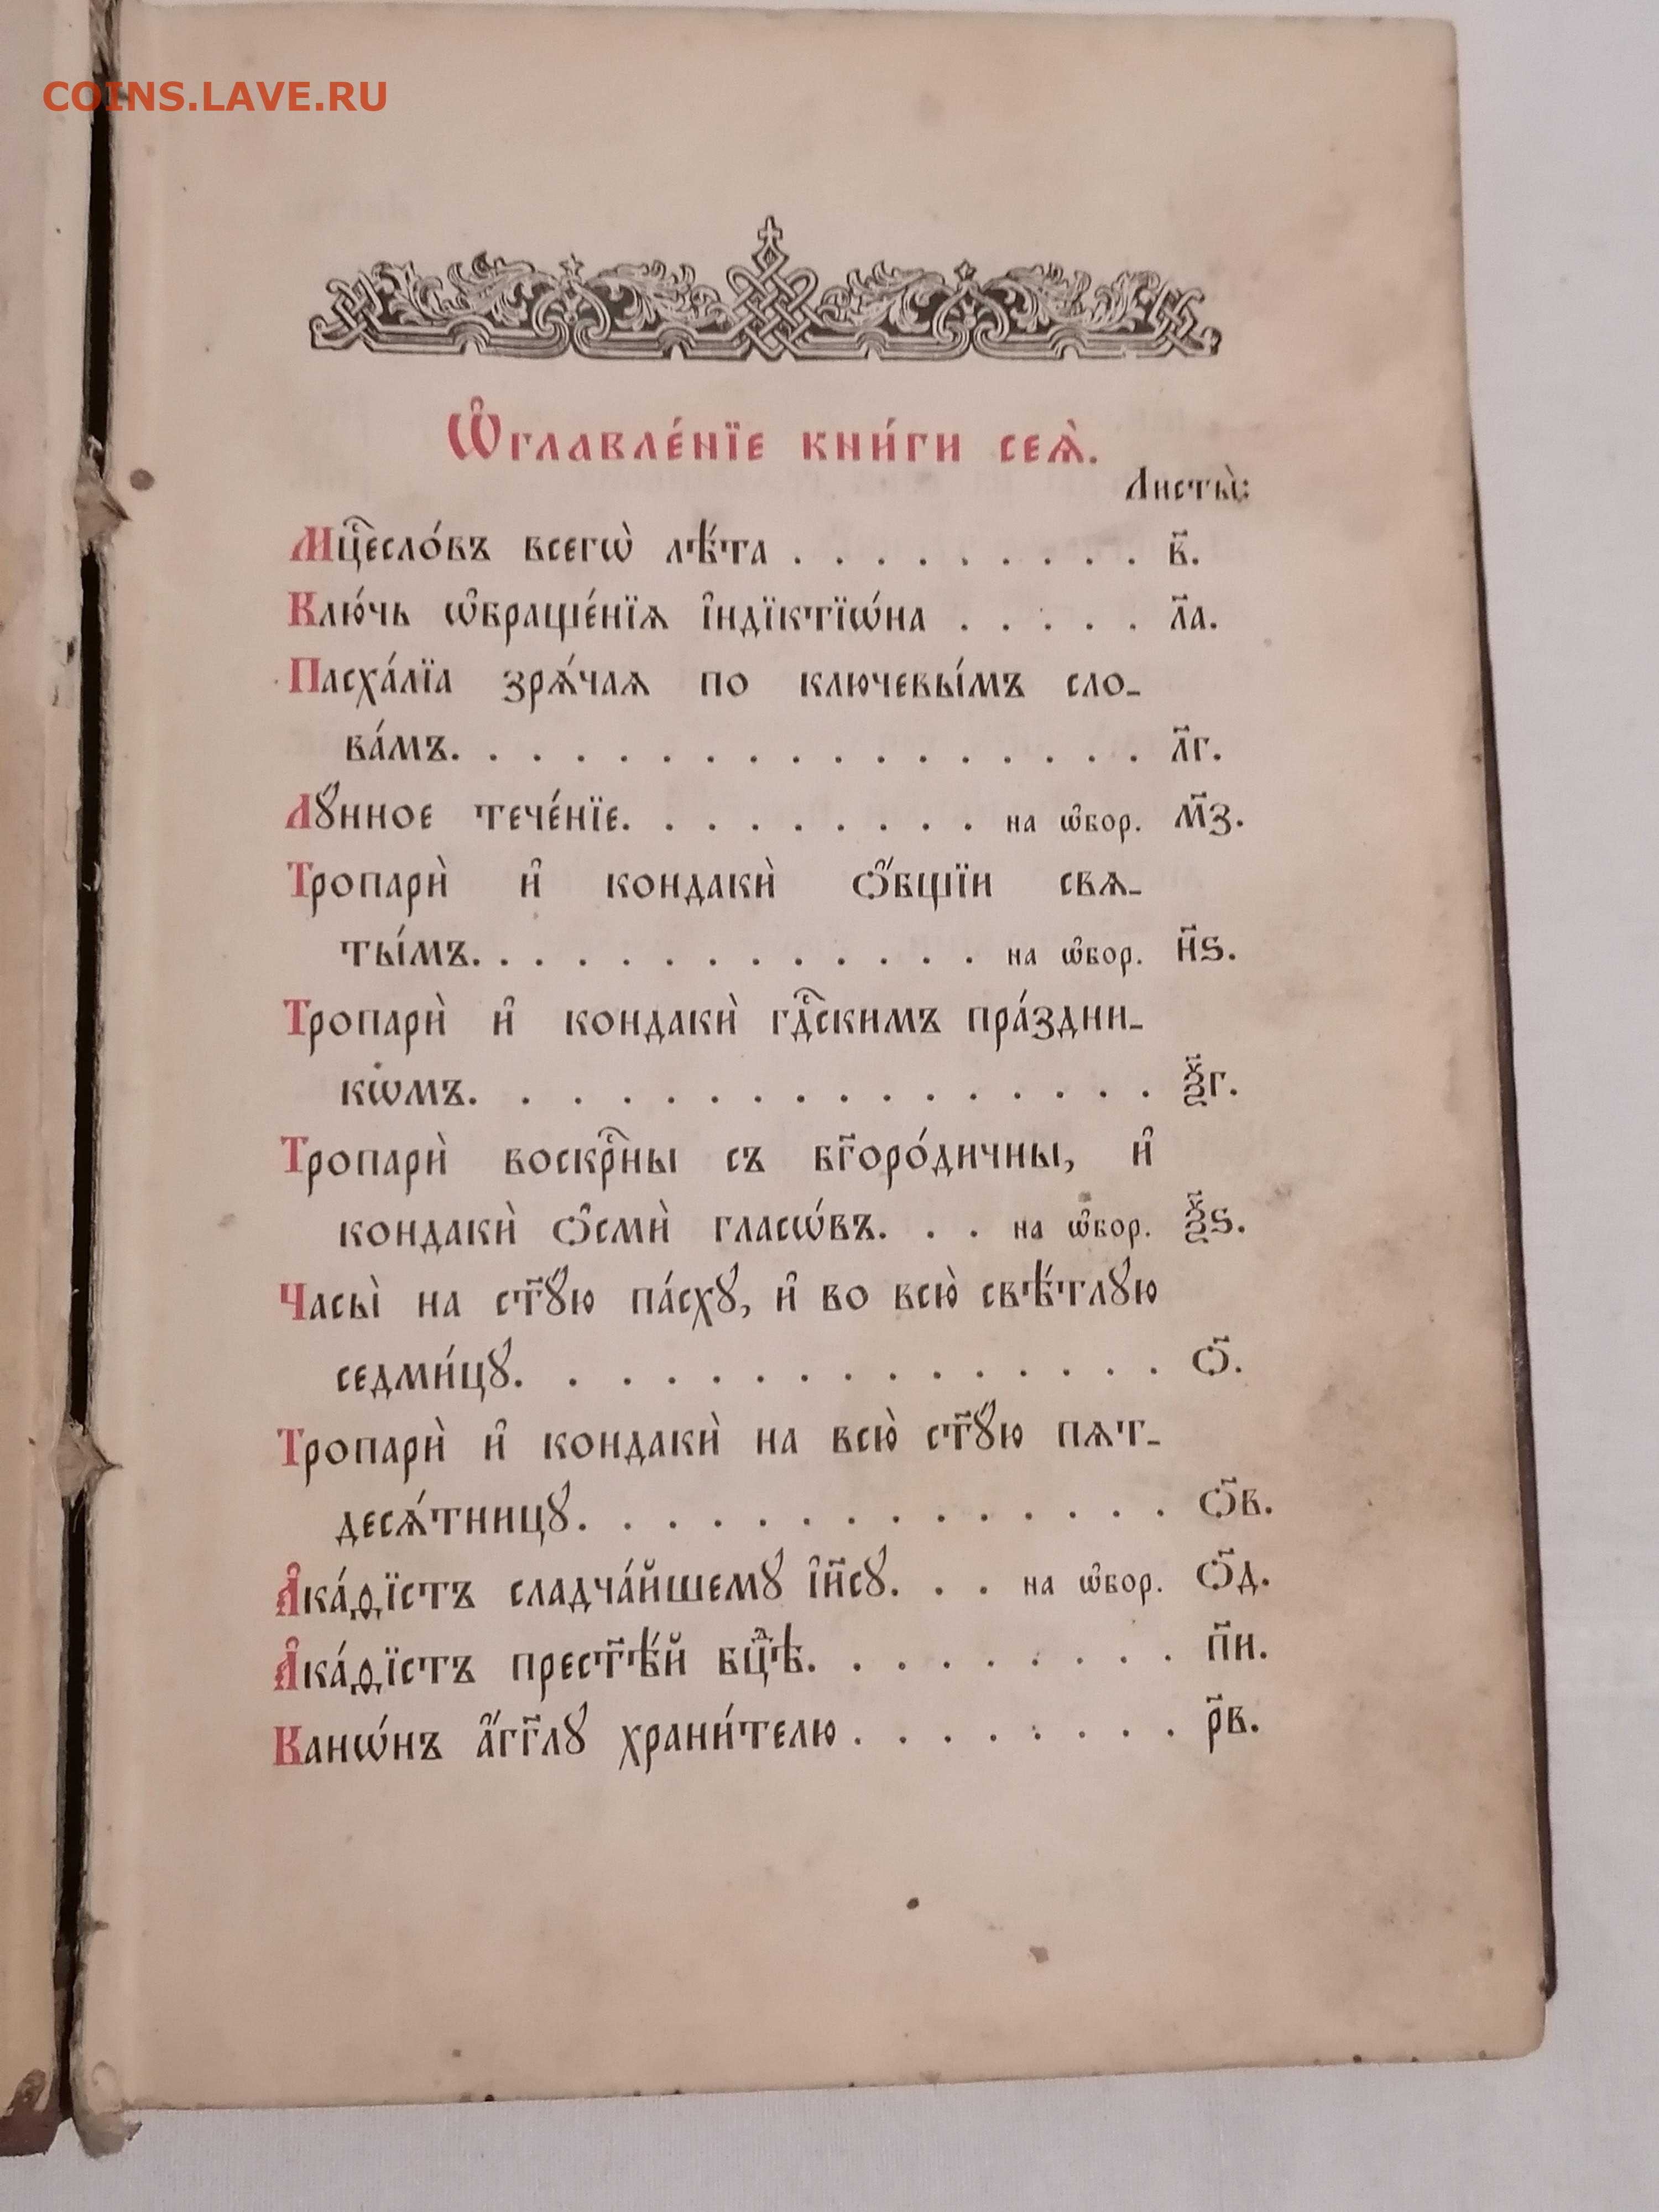 COINS.LAVE.RU
Ѡ҆главле́нїе кни́ги сеѧ̀.
Листы̀:
Мцⷭ҇есло́въ всегѡ̀ лѣ́та . . . . . . . . . в҃.
Клю́чь ѡ҆браще́нїѧ і҆ндїктїѡ́на . . . . . л҃а.
Пасха́лїа зрѧ́чаѧ по ключевы́мъ сло-
ва́мъ. . . . . . . . . . . . . . . . . л҃г.
Лꙋ́нное тече́нїе. . . . . . . . . на ѡ҆бор. м҃з.
Тропарѝ и҆ кондакѝ ѻ҆́бщїи свѧ-
ты́мъ. . . . . . . . . . . . . на ѡ҆бор. н҃ѕ.
Тропарѝ и҆ кондакѝ гдⷭ҇скимъ пра́здни-
кѡмъ. . . . . . . . . . . . . . . . ѯ҃г.
Тропарѝ воскрⷭ҇ны съ бг҃оро́дичны, и҆
кондакѝ ѻ҆смѝ гласѡ́въ. . . на ѡ҆бор. ѯ҃ѕ.
Часы̀ на ст҃ꙋ́ю па́схꙋ, и҆ во всю̀ свѣ́тлꙋю
седми́цꙋ. . . . . . . . . . . . . . . ѻ҃.
Тропарѝ и҆ кондакѝ на всю̀ ст҃ꙋ́ю пѧт-
десѧ́тницꙋ. . . . . . . . . . . . . . ѻ҃в.
А҆ка́ѳїстъ сладча́йшемꙋ і҆и҃сꙋ. . . на ѡ҆бор. ѻ҃д.
А҆ка́ѳїстъ прест҃ѣ́й бцⷣѣ. . . . . . . . . п҃и.
Канѡ́нъ а҆́гг҃лꙋ храни́телю . . . . . . . . р҃в.